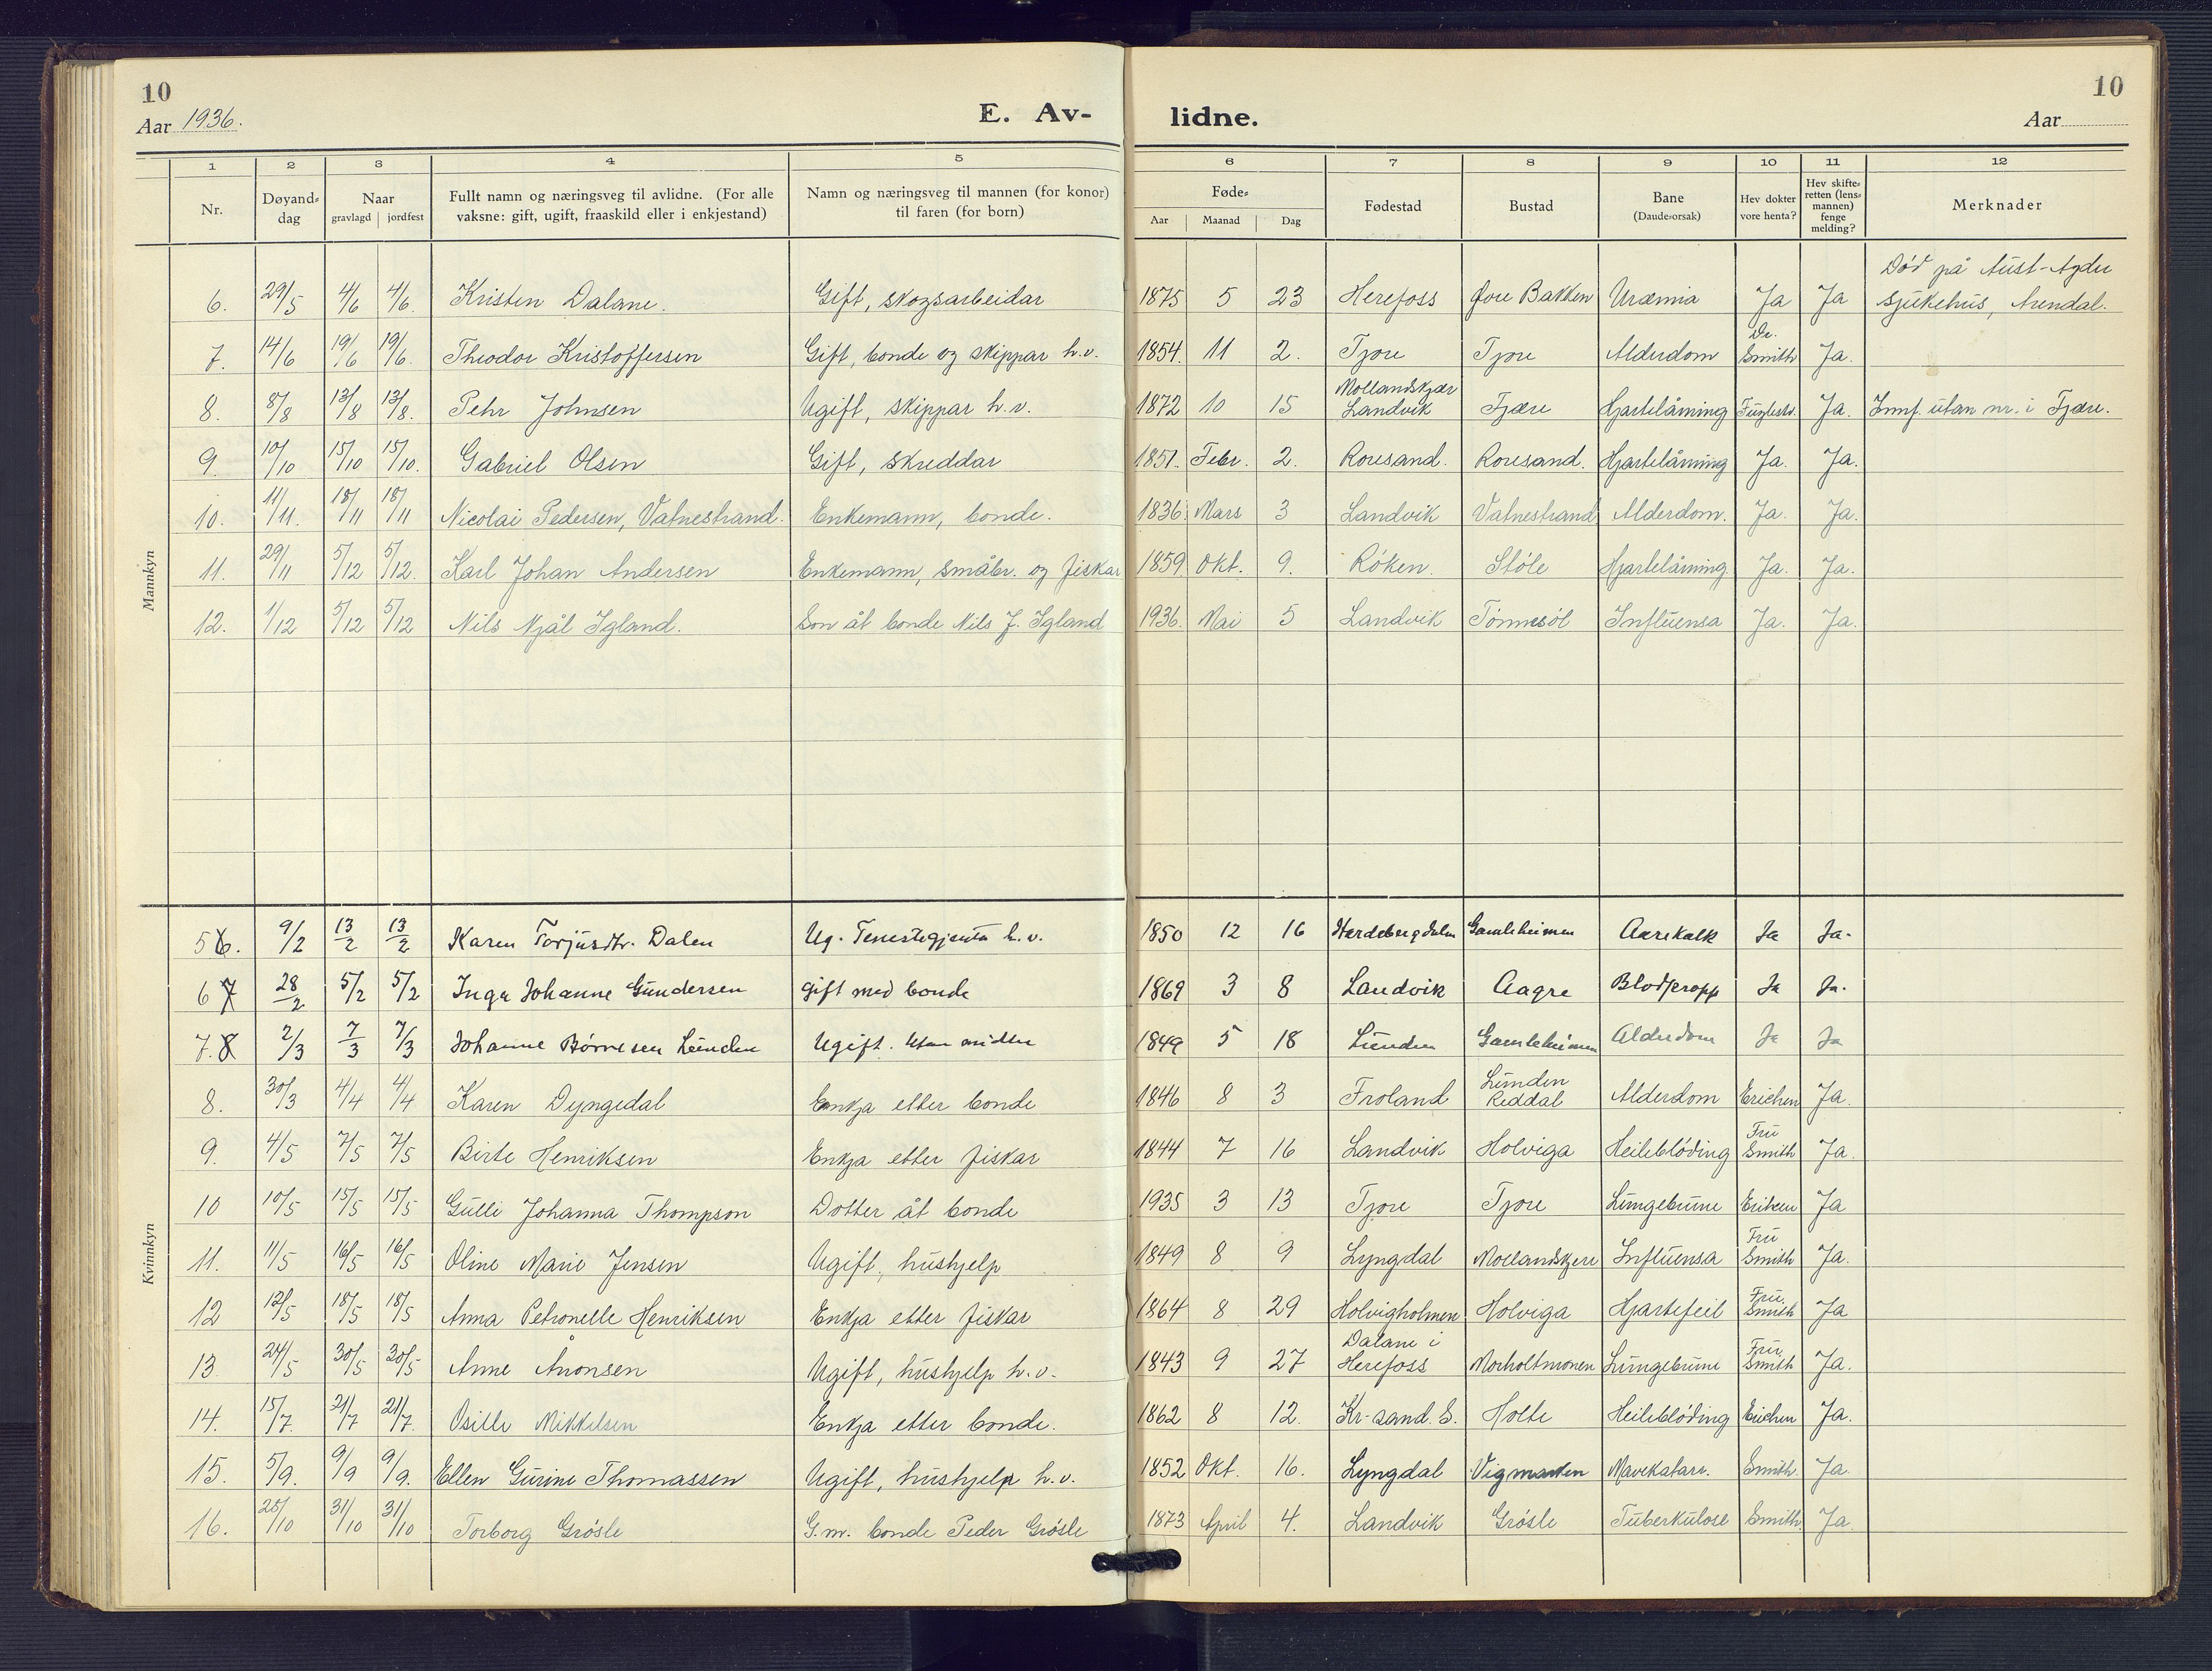 10
Aar 1936.
E. Av-
lidne.
10
Aar
1 2 3 4 5 6 7 8 9 10 11 12
Nr.
Døyand-dag
Naar
gravlagd | jordfest
Fullt namn og næringsveg til avlidne. (For alle vaksne: gift, ugift, fraaskild eller i enkjestand)
Namn og næringsveg til mannen (for konor) til faren (for born)
Føde-
Aar | Maanad | Dag
Fødestad
Bustad
Bane (Daude-orsak)
Hev dokter vore henta?
Hev skifte-retten (lens-mannen) fenge melding?
Merknader
Mannkyn
6. 29/5 4/6 4/6. Kristen Dalane. Gift, skogsarbeidar 1875 5 23 Herefoss Øvre Bakken Uræmia Ja Ja Død på Aust-Agder sjukehus, Arendal.
7. 14/6 19/6 19/6. Theodor Kristoffersen Gift, bonde og skippar h.v. 1854. 11 2. Tjore Tjore Alderdom Dr. Smith Ja.
8. 8/8 13/8 13/8. Pehr Johnsen Ugift, skippar h.v. 1872 10 15 Mollandskjær Landvik Fjære Hjartelåming Ja. Innf. utan nr. i Fjære.
9. 10/10 15/10 15/10. Gabriel Olsen Gift, skreddar 1851. Febr. 2. Roresand. Roresand. Hjartelåming Ja. Ja.
10. 11/11. 18/11 18/11 Nicolai Pedersen, Vatnestrand. Enkemann, bonde. 1836. Mars 3 Landvik Vatnestrand Alderdom. Ja. Ja.
11. 29/11 5/12 5/12. Karl Johan Andersen Enkemann, småbr. og fiskar 1859. Okt. 9. Røken. Støle Hjartelåming. Ja. Ja.
12. 1/12 5/12 5/12 Nils Njål Igland. Son åt bonde Nils J. Igland 1936. Mai 5 Landvik Tønnesøl Influensa Ja. Ja.
Kvinnkyn
5 6. 9/2 13/2 13/2 Karen Torjusdtr. Dalen Ug. Tenestegjenta h.v. 1850 12 16 Gamleheimen Aarekalk Ja Ja.
6 7 28/2 5/2 5/2 Inga Johanne Gundersen gift med bonde 1869 3 8 Landvik Aagre Blodpropp Ja Ja.
7. 8 2/3 7/3 7/3 Johanne Børresen Lunden Ugift. Utan midler 1849 5 18 Lunden Gamleheimen Alderdom Ja Ja
8. 30/3 4/4 4/4 Karen Dyngedal Enkja etter bonde 1846 8 3 Froland Lunden Reddal Alderdom Erichsen Ja.
9. 4/5 7/5 7/5 Birte Henriksen Enkja etter fiskar 1844 7 16 Landvik Holviga Heilebløding Fru Smith Ja.
10 10/5 15/5 15/5 Gulli Johanna Thompson Dotter åt bonde 1935 3 13 Tjore Tjore Lungebune Eriksen Ja
11. 11/5 16/5 16/5 Oline Marie Jensen Ugift, hushjelp 1849 8 9 Lyngdal Mollandskjere Influensa Fru Smith Ja.
12 12/5 18/5 18/5 Anna Petronelle Henriksen Enkja etter fiskar 1864 8 29 Holvigholmen Holviga Hjartefeil Fru Smith Ja
13 24/5 30/5 30/5 Anne Aronsen Ugift, hushjelp h.v. 1843 9 27 Dalane i Herefoss Morholtmonen Lungebune Fru Smith Ja.
14. 15/7. 21/7 21/7. Osille Mikkelsen Enkja etter bonde. 1862 8 12. Kr-sand S. Holte Heilebløding Erichsen Ja.
15. 5/9. 9/9 9/9. Ellen Gurine Thomassen Ugift, hushjelp h.v. 1852 Okt. 16. Lyngdal Vigmarken Mavekatarr. Smith. Ja.
16. 25/10 31/10 31/10 Torborg Grøsle G.m. bonde Peder Grøsle 1873 April 4. Landvik Grøsle Tuberkulose Smith Ja.